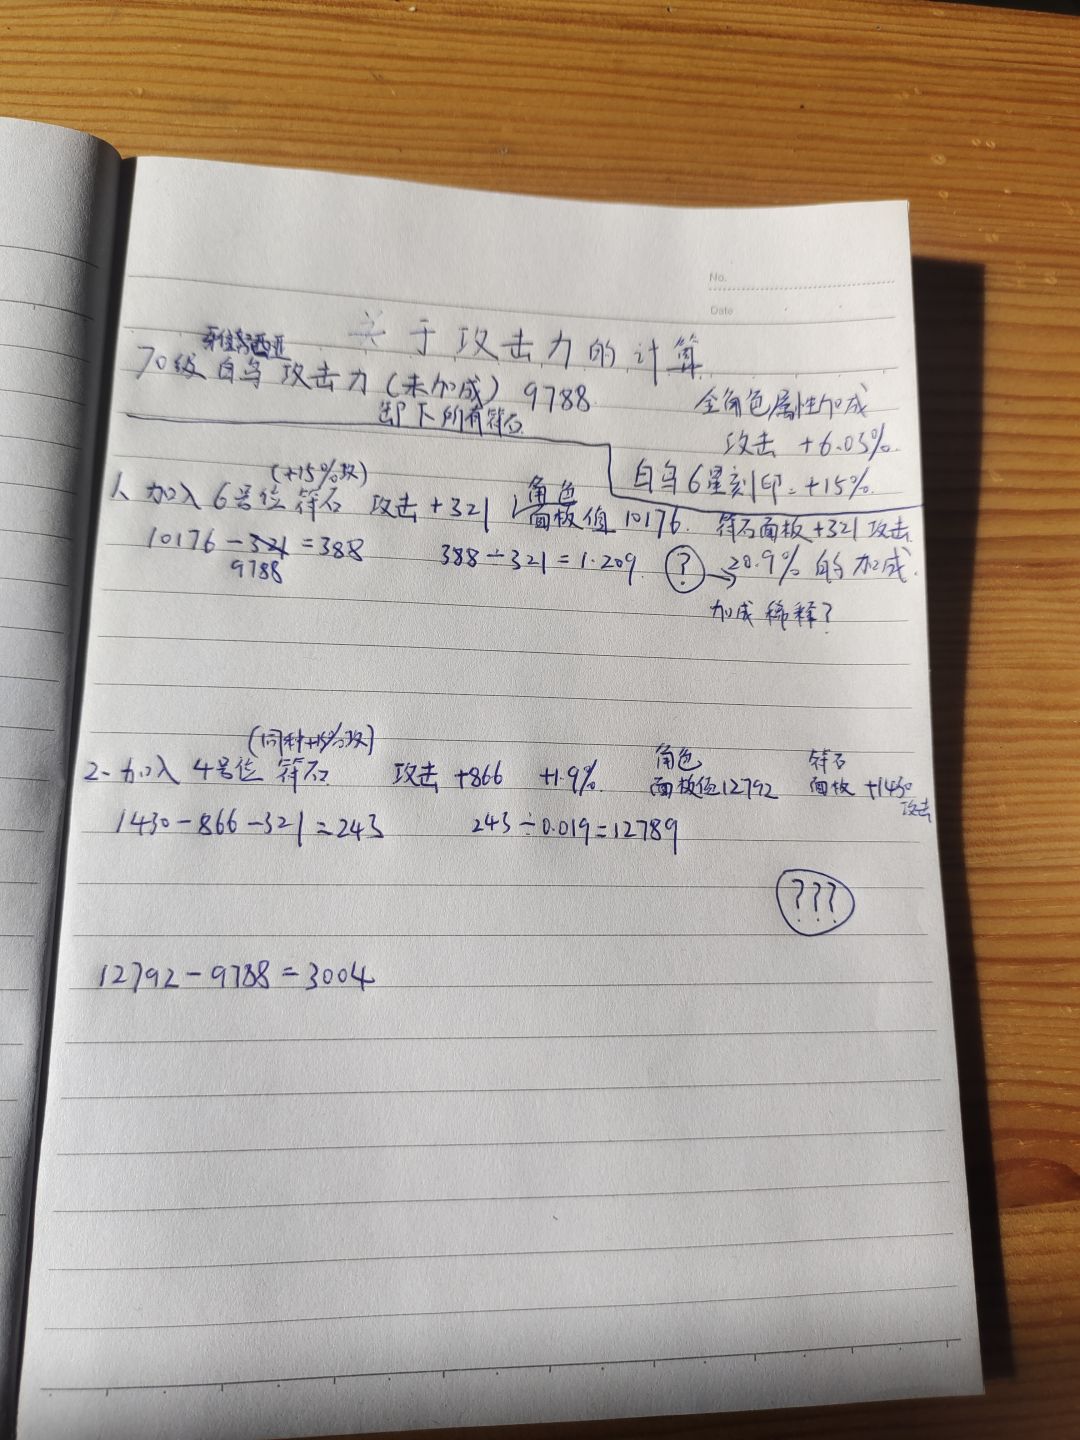 No.
Date
关于攻击力的计算
70级 白鸟 攻击力(未加成) 9788
卸下所有符石
全角色属性加成
攻击 +6.03%
白鸟6星刻印=+15%
(+15%攻)
1、加入6号位符石 攻击+321 角色面板值10176. 符石面板+321攻击
10176-321=388 388÷321=1.209 ? → 20.9%的加成.
9788
加成稀释?
(同种+15%攻)
2、加入4号位符石 攻击+866 +1.9% 角色面板值12792 符石面板+1430攻击
1430-866-321=243 243÷0.019=12789
???
12792-9788=3004